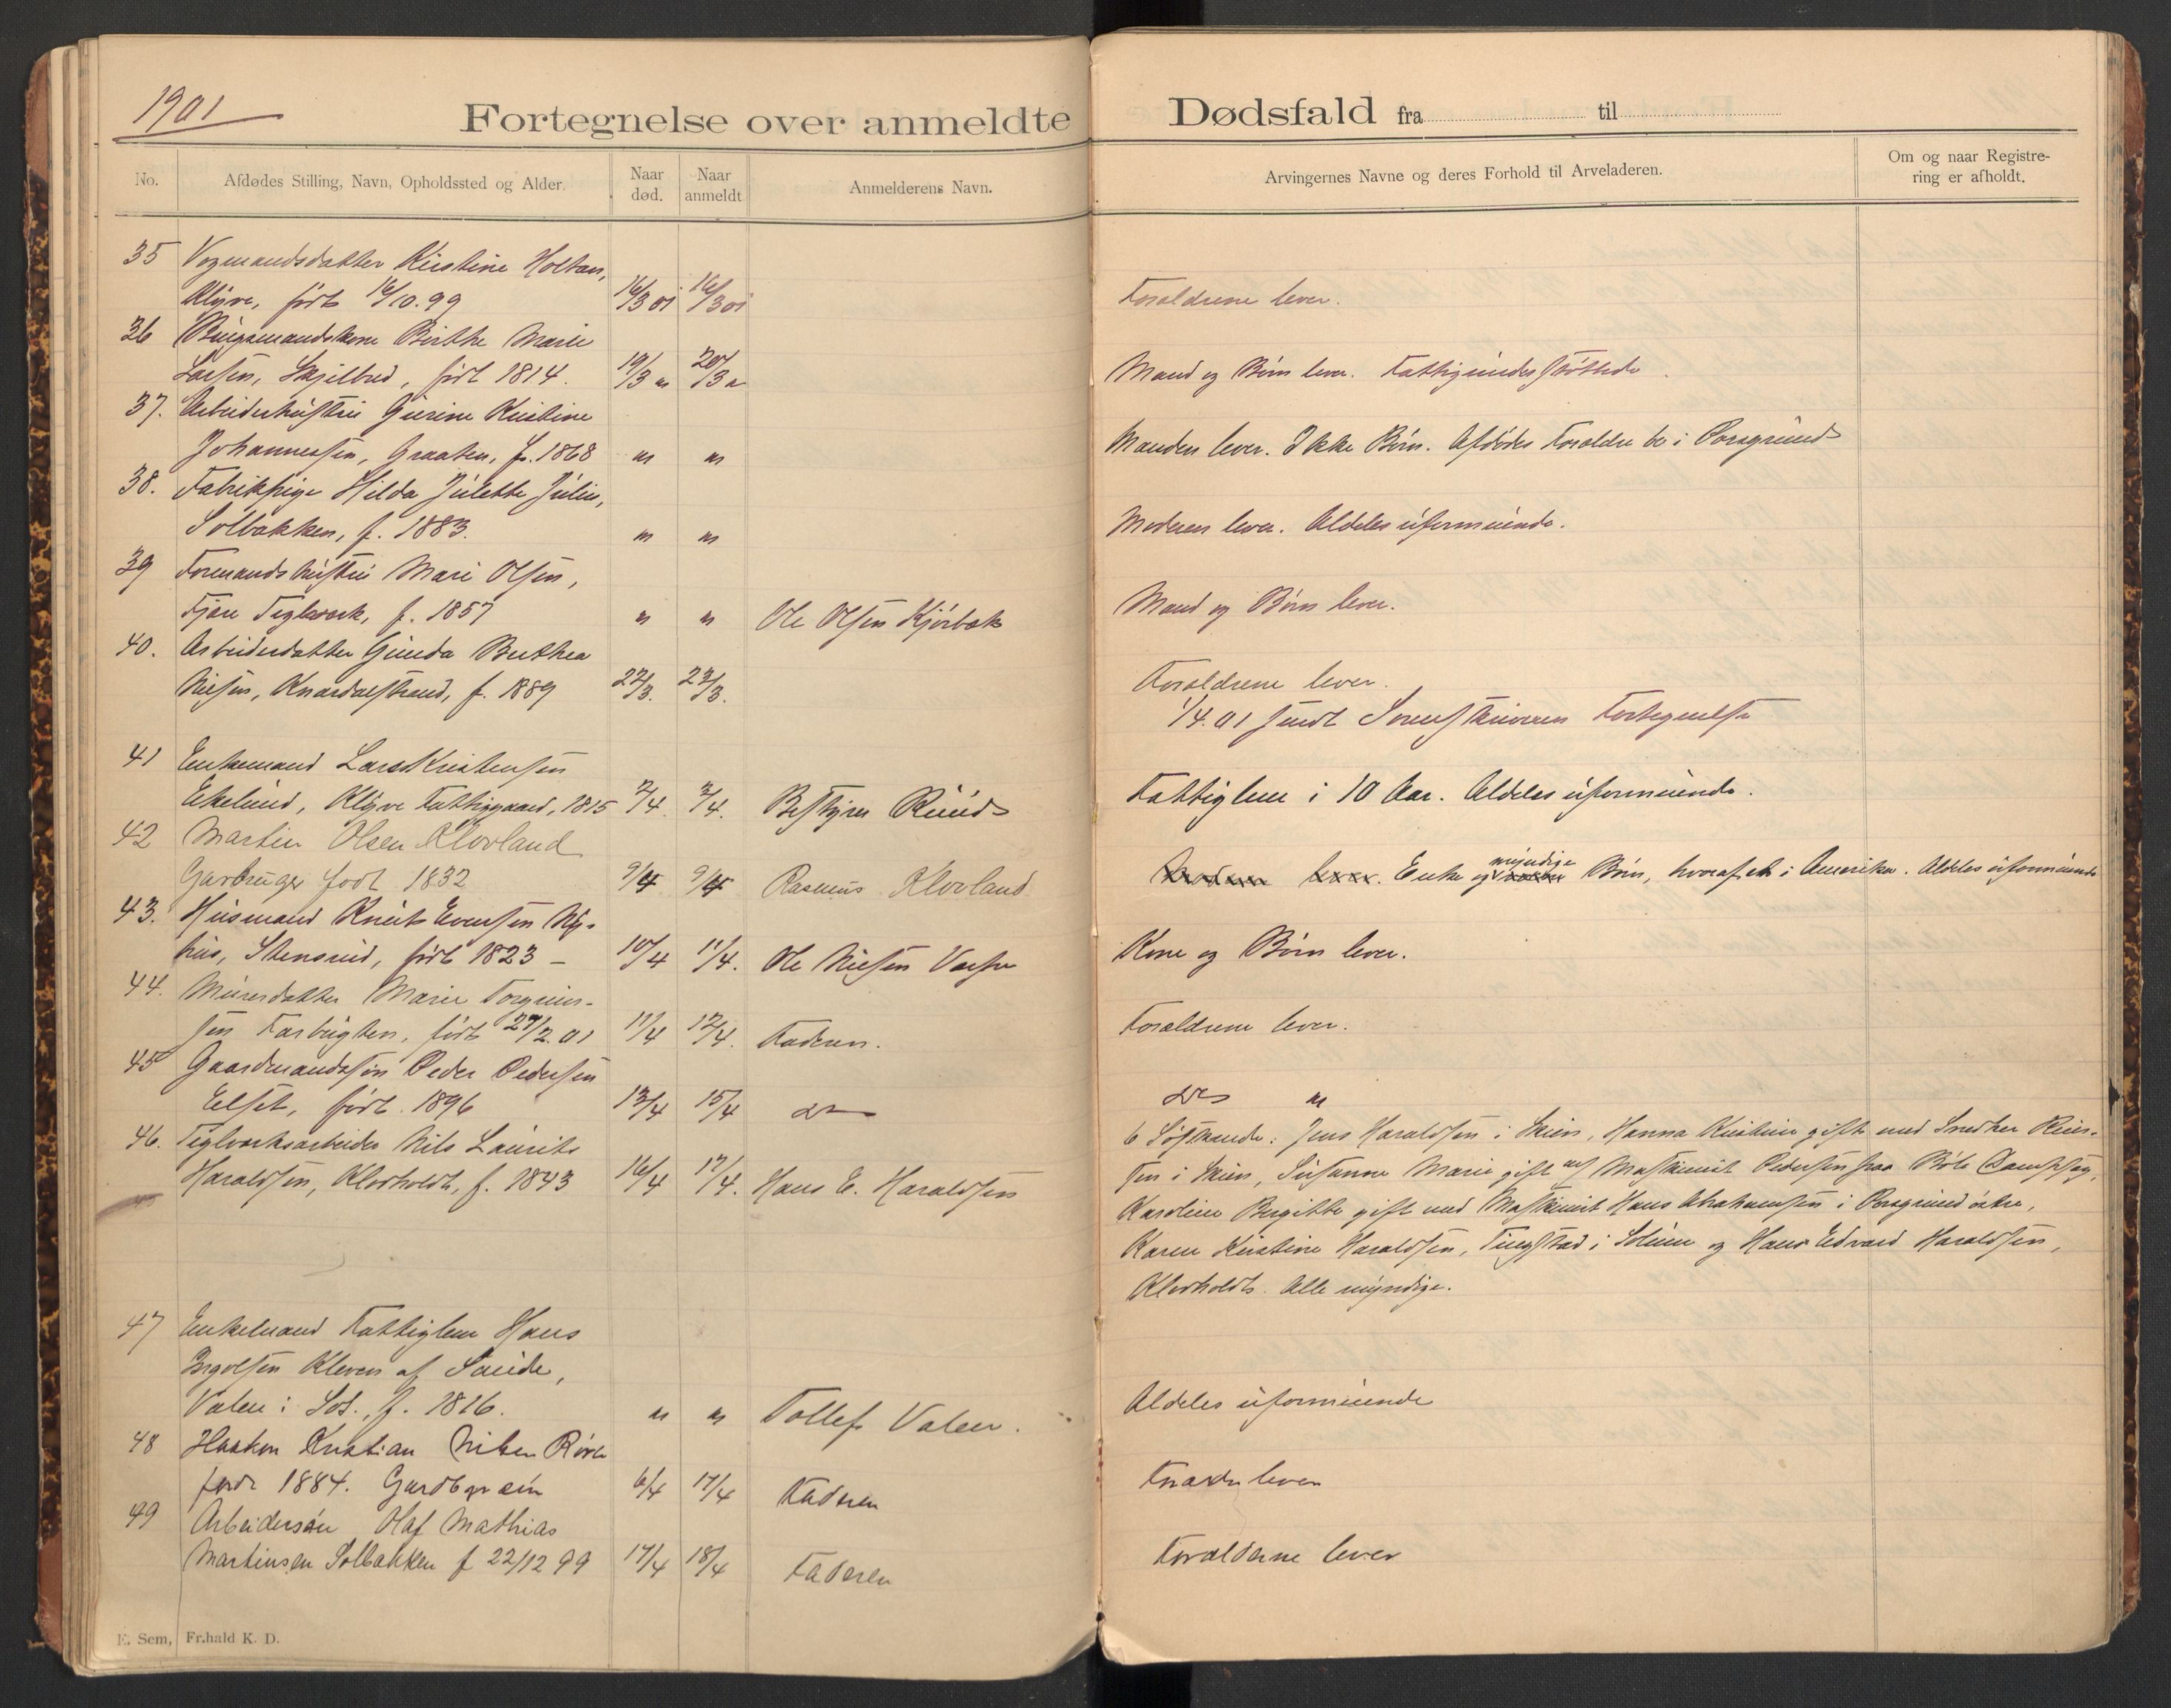 1901
Fortegnelse over anmeldte Dødsfald fra til
No. Afdødes Stilling, Navn, Opholdssted og Alder. Naar død. Naar anmeldt Anmelderens Navn. Arvingernes Navne og deres Forhold til Arveladeren. Om og naar Registrering er afholdt.
35 Vognmandsdatter Kristine Holtan,
Klyve, født 16/10.99 16/3 01 16/3 01 Forældrene lever.
36 Kone Birthe Marie
Larsen, Skjelbred, født 1814. 19/3 " 20/3 " Mand og Børn lever. Fattigunderstøttede.
37. Arbeiderhustru Gurine Kristine
Johannessen, Graaten, f. 1868 " " Manden lever. Ikke Børn. Afdødes Forældre bor i Porsgrund
38. Fabrikpige Hilda Julette Julin,
Solbakken, f. 1883. " " Moderen lever. Aldeles uformuende.
39 Formandshustru Mari Olsen,
Fjære Teglværk, f. 1857 " " Ole Olsen Kjørbæk Mand og Børn lever.
40. Arbeiderdatter Gunda Berthea
Nilsen, Knardalstrand, f. 1889 22/3. 23/3. Forældrene lever.
1/4.01 sendt Sorenskriveren Fortegnelse
41 Enkemand Lars Kristensen
Ekelund, Klyve Fattiggaard, 1815 2/4. 3/4. Bestyrer Ruud Fattiglem i 10 Aar. Aldeles uformuende.
42 Martin Olsen Klovland
Garbruger født 1832 9/4 9/4 Rasmus Klovland lever. Enke og myndige Børn, hvoraf et i Amerika. Aldeles uformuende
43. Husmand Knut Evensen Ny-
hus, Stensrud, født 1823 – 10/4 11/4. Ole Nilsen Kone og Børn lever.
44. Murerdatter Marie Torgrim-
sen Farbugten, født 27/2.01 11/4 12/4. Faderen. Forældrene lever.
45 Gaardmandssøn Peder Pedersen
Elset, født 1896 13/4 15/4 do do "
46. Teglværksarbeider Nils Laurits
Haraldsen, Klovholdt, f. 1843 16/4 17/4. Hans E. Haraldsen
6 Søskende: Jens Haraldsen i Skien, Hanna Kristine gift med Snedker
i Skien, Susanne Marie gift m/ Maskinist Pedersen paa Bøle Dampsag,
Karoline Bergitte gift med Maskinist Hans Abrahamsen i Porsgrund østre,
Karen Kristine Haraldsen, Tingstad i Solum og Hans Edvard Haraldsen,
Klovholdt. Alle myndige.
47 Enkemand Fattiglem Hans
Ingolfsen Kleven af Saude,
Valen i Sol., f. 1816. " " Tollef Valen. Aldeles uformuende
48 Haakon Kristian Nilsen
født 1884. Gardbr søn 6/4 17/4 Faderen lever
49 Arbeidersøn Olaf Mathias
Martinsen Solbakken f 22/12 99 17/4 18/4 Faderen Forælderne lever
E. Sem, Fr.hald K. D.